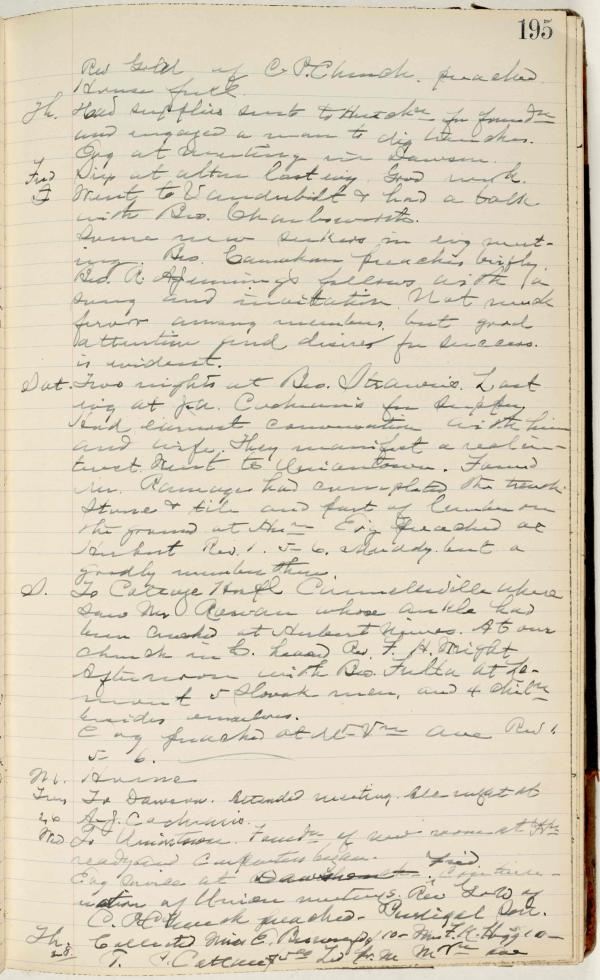 195
Rev Gold of C. P. Church preached.
House full.
Th. Had supplies sent to Hutchn for foundn
and engaged a man to dig trenches.
Evg at meeting in Dawson.
Frid Disp at altar last evg. Good work.
F Went to Vanderbilt & had a talk
with Bro. Charlesworth.
Some new seekers in evg meet-
ing. Bro. Carnahan preaches briefly.
Bro. R. A. Jennings follows with a
song and invitation. Not much
fervor among members, but good
attention and desires for success.
is evident.
Sat. Two nights at Bro. Strawn's. Last
evg at Jas. Cochran's for supper
Had earnest conversation with him
and wife. They manifest a real in-
terest. Went to Uniontown. Found
Mr. Ramage had completed the trench
Stone & tile and part of lumber on
the ground at Hn Evg preached at
Herbert Rev. 1. 5-6. Muddy but a
goodly number there.
S. To Cottage Hospl Connellsville where
saw Mr Rewan whose ankle had
been crushed at Herbert Mines. At our
church in C. heard Rev. F. H. Wright
Afternoon with Bro. Fulta at Le-
mont 5 Slovak men, and 4 childn
besides ourselves.
Evg preached at Mt Vn ave Rev 1.
5-6.
M. Home
Tues To Dawson. Attended meeting. All night at
26 A. J. Cochran's.
Wed To Uniontown. Foundn of new room at Hn
ready and Carpenters began.
Evg service at Frid. Continu-
uation of Union meetings. Rev Gold of
C. P. Church preached.
Th. Collected Miss E. 10- Mrs. F. K. Hogg 10-
28. T.